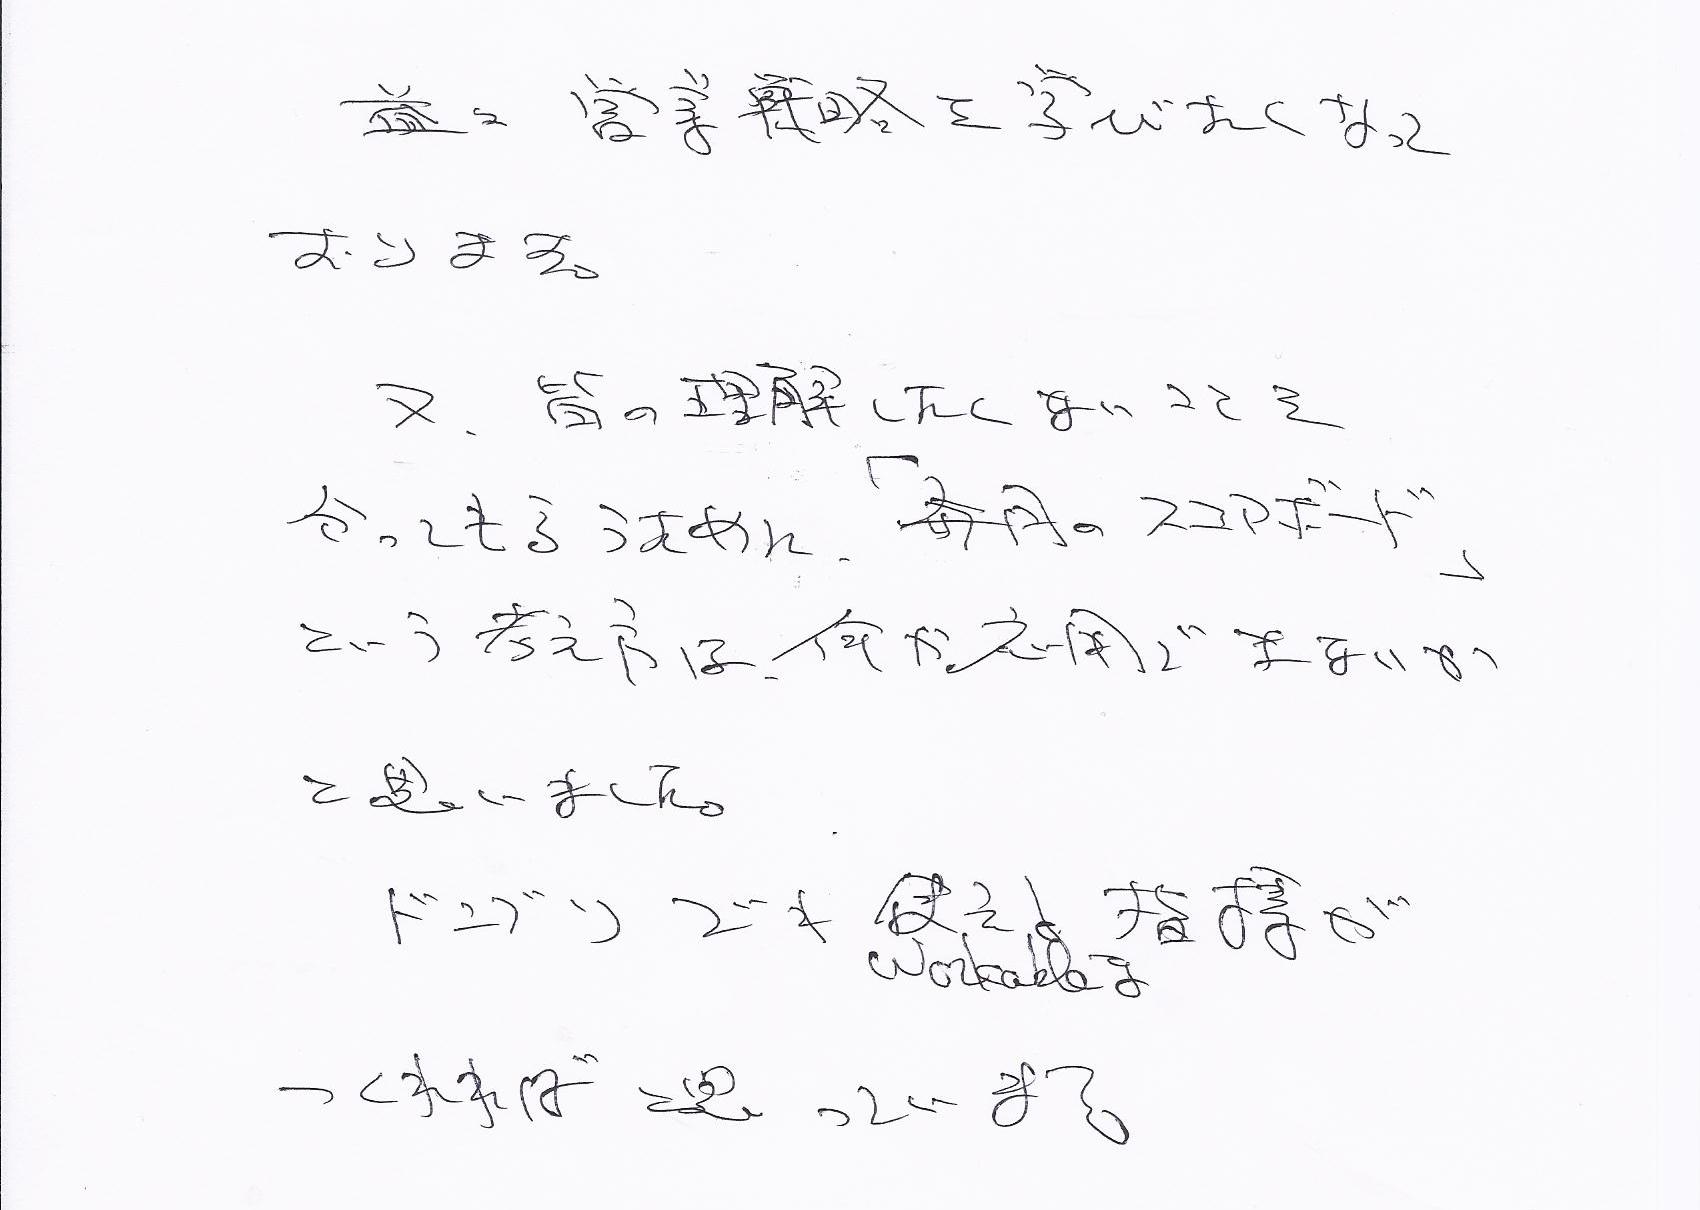 益々営業戦略を学びたくなって
おります。
又、皆の理解したくないことを
分ってもらうために、「毎月のスコアボード」
という考え方は、何か応用できないか
と思いました。
ドンブリでも使える指標が
workableな
つくれればと思っています。